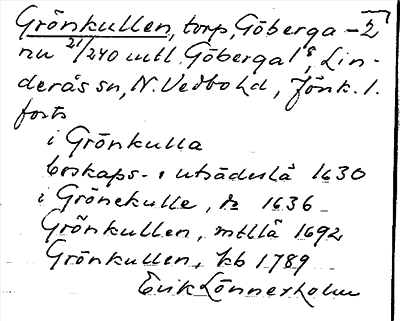 Grönkullen, torp, Göberga - 2
nu 21/240 mtl Göberga 1 8, Lin-
derås sn, N. Vedbo hd, Jönk. l.
forts
i Grönkulla
boskaps- o utsädeslä 1630
i Grönekulle, rr 1636
Grönkullen, mtllä 1692
Grönkullen, kb 1789
Erik Lönnerholm